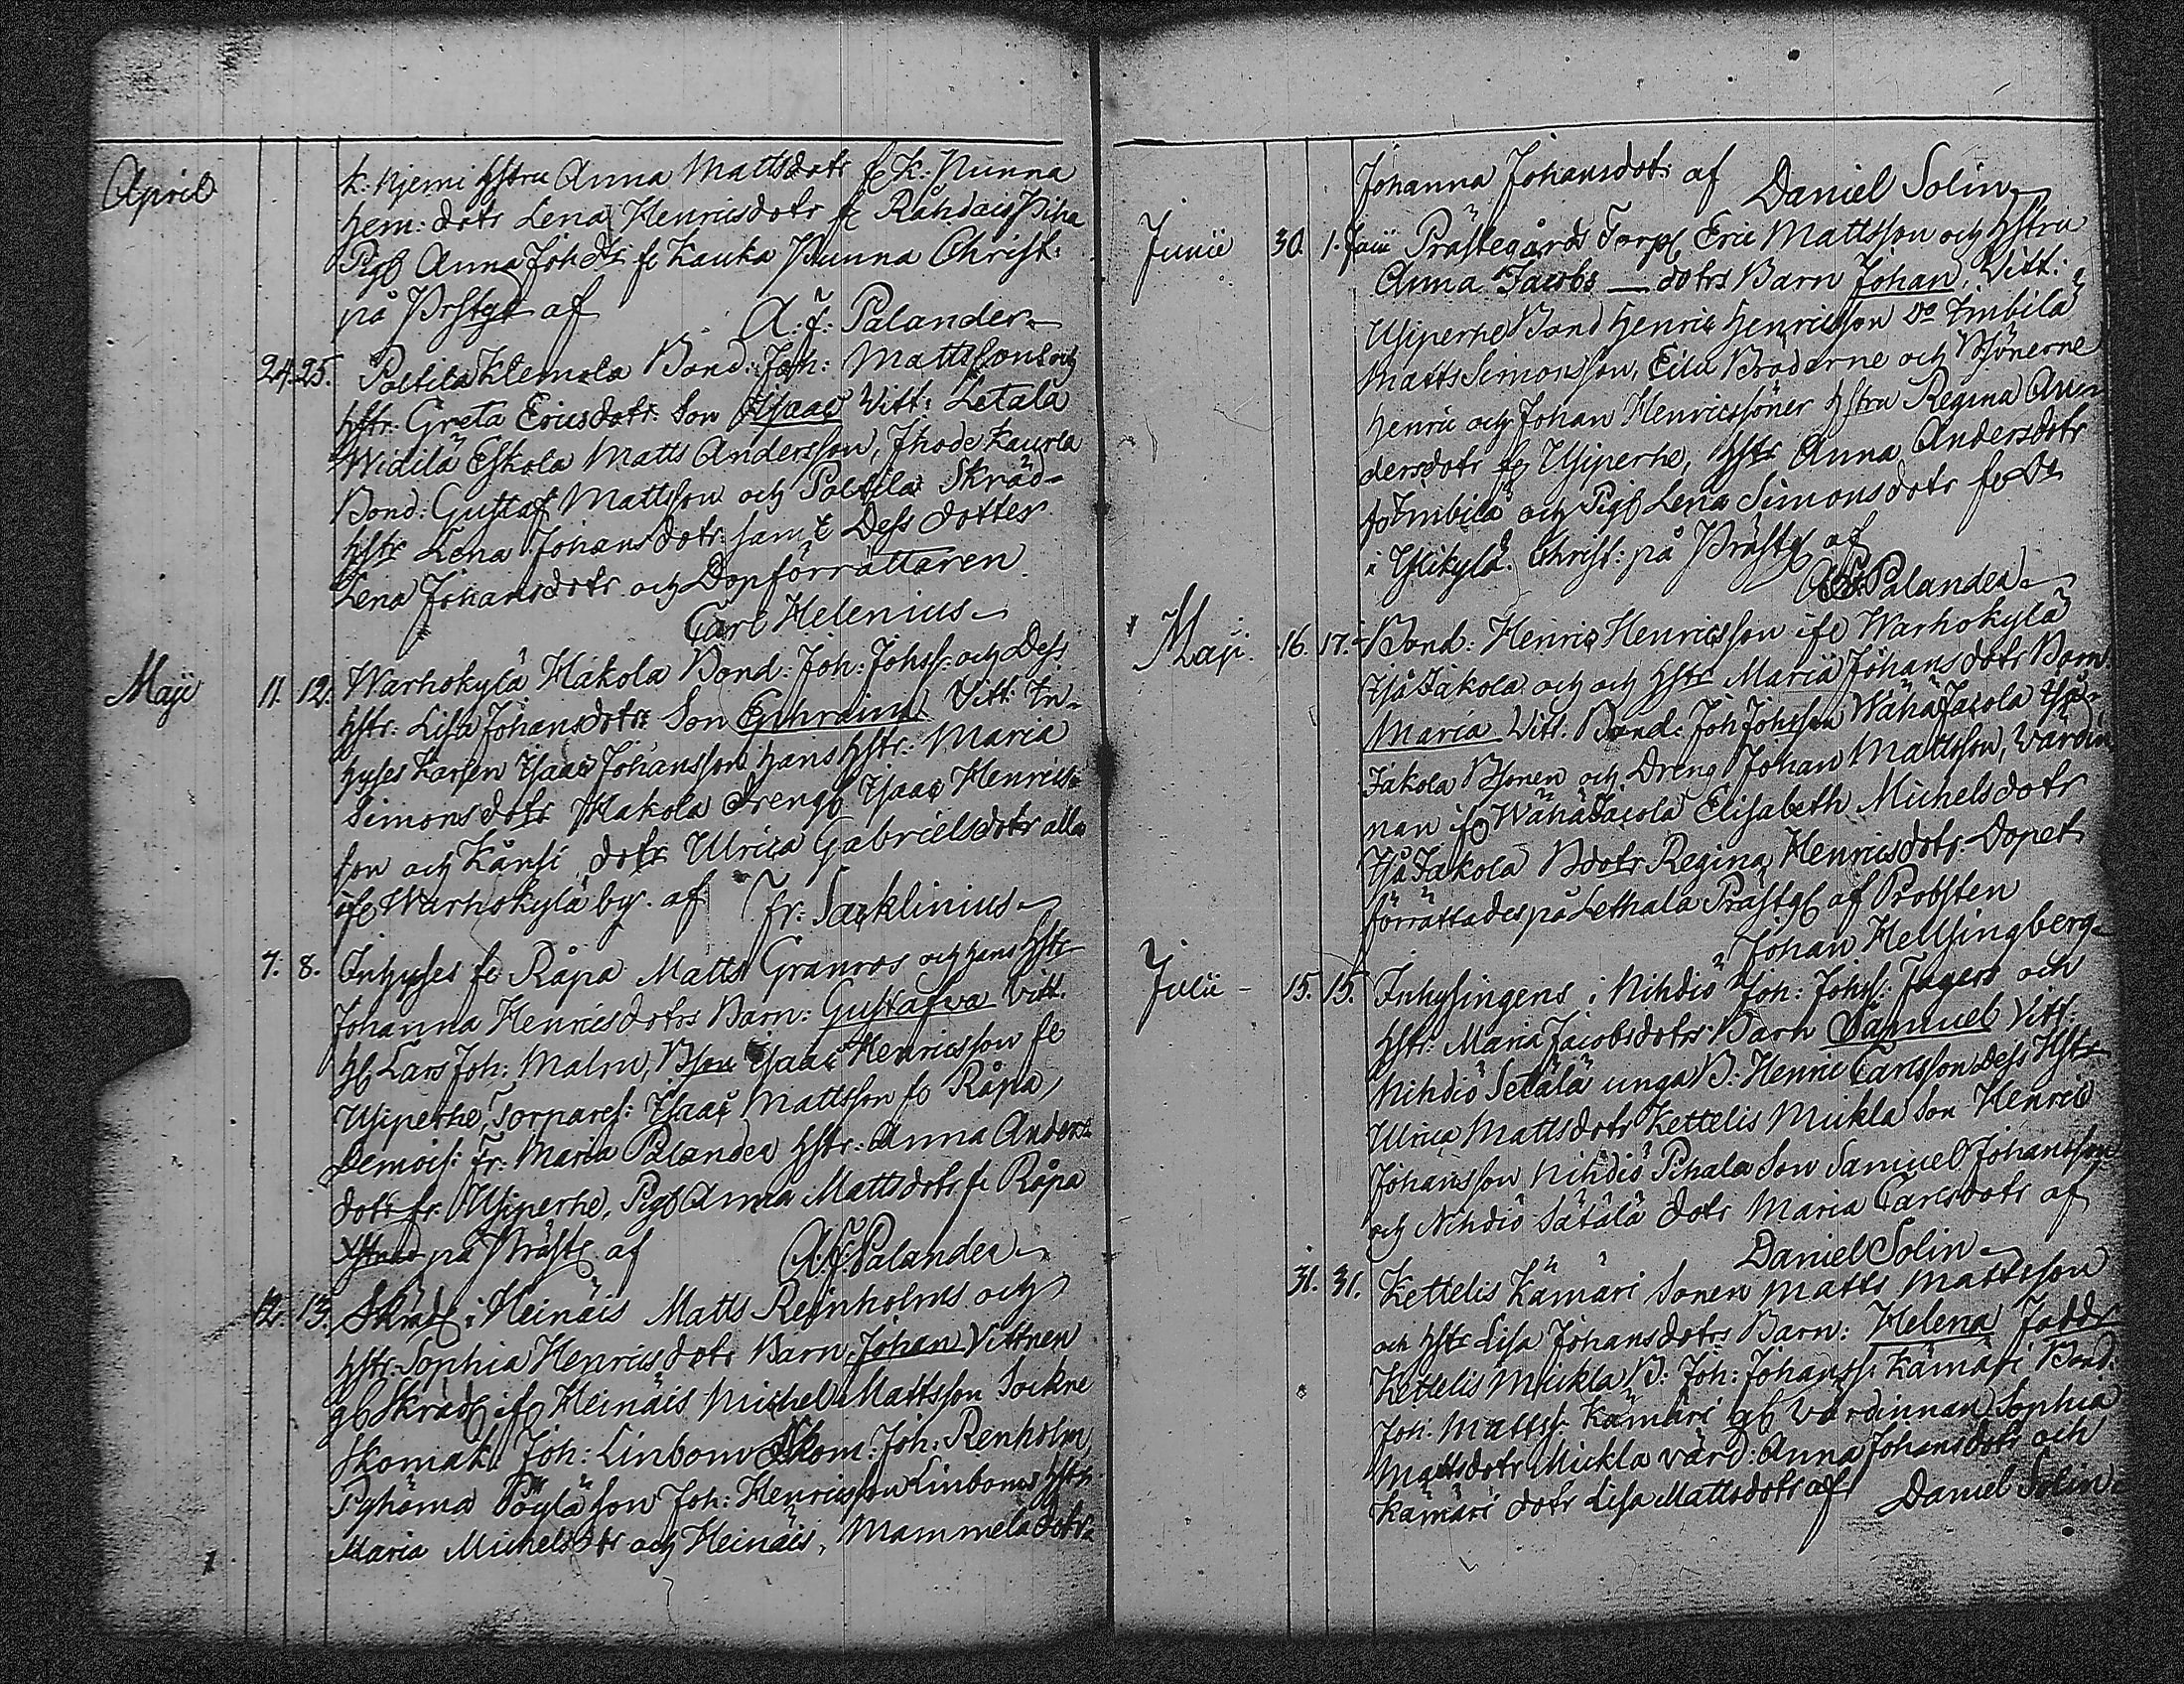 April
k: Njemi hstru Anna Mattsdotr fr K: Nunna
hem: dotr Lena Henricsdotr fr Råhdais Piha
Pig Anna Joh dr fr Kauka Nunna Christ:
på Prstgd af A: F: Palander
24. 25. Paltila Klemola Bond: Joh: Mattssons och
hstr: Greta Ericsdotr Son Isaac Vitt: Letala
Widilä Eskola Matts Andersson, Ihode Kaurla
Bond: Gustaf Mattsson och Paltila Skräd-
hstr Lena Johansdotr samt Dess dotter
Lena Johansdotr och Dopförrättaren
Carl Helenius
Maji 11. 12. Warhokylä Hakola Bond: Joh: Johss: och Dess
hstr: Lisa Johansdotr Son Ephraim Vitt: In-
hyses Karlen Isaac Johansson hans hstr: Maria
Simonsdotr Hakola Dreng Isaac Henrics-
son och Kånsi dotr Ulrica Gabrielsdotr alla
ifr Warhokylä by. af Fr: Sacklinius
7. 8. Inhyses fr Råpa Matts Granros och hans hstr
Johanna Henricsdotrs Barn: Gustafva Vitt.
Lars Joh: Malm, Bson Isaac Henricsson fr
Ysiperhe, Torpares: Isaac Mattsson fr Råpa,
Demois: Fr: Maria Palander hstr: Anna Anders-
dotr fr Ysiperhe, Pig Anna Mattsdotr fr Råpa
på Präst af A: F: Palander
12. 13. Skräd i Heinäis Matts Reinholms och
hstr: Sophia Henricsdotr Barn: Johan Vittnen
Skräd ifr Heinäis Michel Mattsson Sockne
Skomak: Joh: Linbom Skom: Joh: Renholm,
Pyhämä Pöylä son Joh: Henricsson Linboms hstr:
Maria Michelsdotr och Heinäis, Mammela dotr
Johanna Johansdotr af Daniel Solin
Junii 30. 1. Julii Prästegårds Torp Eric Mattsson och hstru
Anna Jacobs — dotrs Barn Johan, Vitt:
Ysiperhe Bond Henric Henricsson Do Imbilä
Matts Simonsson, Eilu Bröderne och Bsönerne
Henric och Johan Henricssöner hstru Regina An-
dersdotr fr Ysiperhe, hstr Anna Andersdotr
fr Imbilä och Pig Lena Simonsdotr fr
i Ylikylä. Christ: på Präst af
A: F: Palander
Maji. 16. 17. Bond: Henric Henricsson ifr Warhokylä
Iså Jakola och och hstr Maria Johansdotr Barn
Maria Vitt. Bond: Joh Johsson Wähä Jacola Iså-
Jakola Bsonen och Dreng Johan Mattsson, Värdin-
nan ifr Wähä Jacola Elisabeth Michelsdotr
Iså Jakola Bdotr Regina Henricsdotr Dopet
förrättades på Lethala Prästg af Probsten
Johan Hellsingberg
Julii – 15. 15. Inhysingens i Nihdiö Joh: Johss: Jagers och
hstr: Maria Jacobsdotrs Barn Samuel Vitt:
Nihdiö Setälä unga B: Henric Carlsson Dess Hstr
Ulrica Mattsdotr Kettelis Mickla Son Henric
Johansson Nihdiö Pihala Son Samuel Johansson
och Nihdiö Sätälä dotr Maria Carlsdotr af
Daniel Solin
31. 31. Kettelis Kämäri Sonen Matts Mattsson
och hstr Lisa Johansdotrs Barn: Helena Faddr
Kettelis Mickla B: Joh: Johanss: Kämäri Bond:
Joh: Mattss: Kämäri Värdinnan Sophia
Mattsdotr Mickla värd: Anna Johansdotr och
Kämäri dotr Lisa Mattsdotr af Daniel Solin